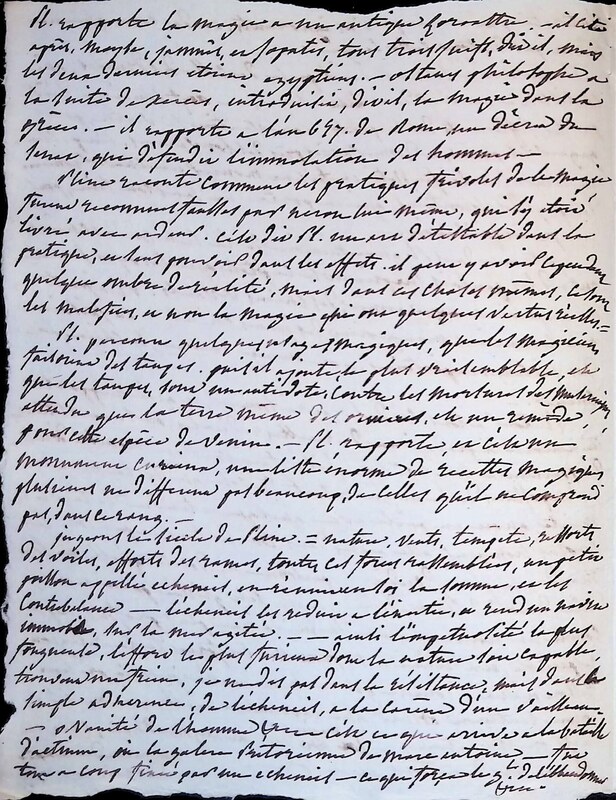 Pl. rapporte la magie a un antique Zoroastre — il cite
après, Moyse, jamnès, et jotapès, tous trois juifs, dit il, mais
les deux derniers etoient egyptiens. — ostanes philosophe a
la suite de xercès, introduisit, dit il, la magie dans la
grèce. — il rapporte a l'an 657. de Rome, un décret du
senat, qui défendit l'immolation des hommes —
Pline raconte comment les pratiques frivoles de la magie
furent reconnues fausses par neron lui même, qui s'y etoit
livré avec ardeur. c'est dit Pl. un art détestable dans la
pratique, et sans pouvoir dans les effets. il peut y avoir cependant
quelque ombre de réalité, mais dans ces choses mêmes, ce sont
les malefices, et non la magie qui ont quelques vertus réelles =
Pl. parcourt quelques usages magiques, que les magiciens
faisoient des taupes. puis il ajoute, le plus vraisemblable, est
que les taupes, sont un antidote, contre les morsures des
attendu que la terre même des ornières, est un remède,
pour cette espèce de venin. — Pl. rapporte, et c'est un
monument curieux, une liste énorme de recettes magiques
plusieurs ne diffèrent pas beaucoup, de celles qu'il ne comprend
pas, dans ce rang. —
jugeons le siècle de Pline. = nature, vents, tempête, efforts
des voiles, efforts des rames, toutes ces forces rassemblées, un petit
poisson appellé echeneis, en réunit en soi la somme, et les
contrebalance — l'echeneis les reduit a l'inertie, et rend un navire
immobile, sur la mer agitée. — — ainsi l'impétuosité la plus
fougueuse, l'effort le plus furieux dont la nature soit capable,
trouvent un frein, je ne dis pas dans la résistance, mais dans la
simple adherence, de l'écheneis, a la carène d'un vaisseau. —
— o vanité de l'homme c'est ce qui arriva a la bataille
d'actium, ou la galère Prétorienne de marc antoine — fut
tout a coup fixée par un echeneis — ce qui força le gl. de l'abandonner